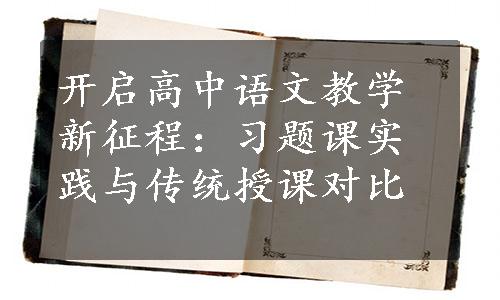 开启高中语文教学
新征程：习题课实
践与传统授课对比